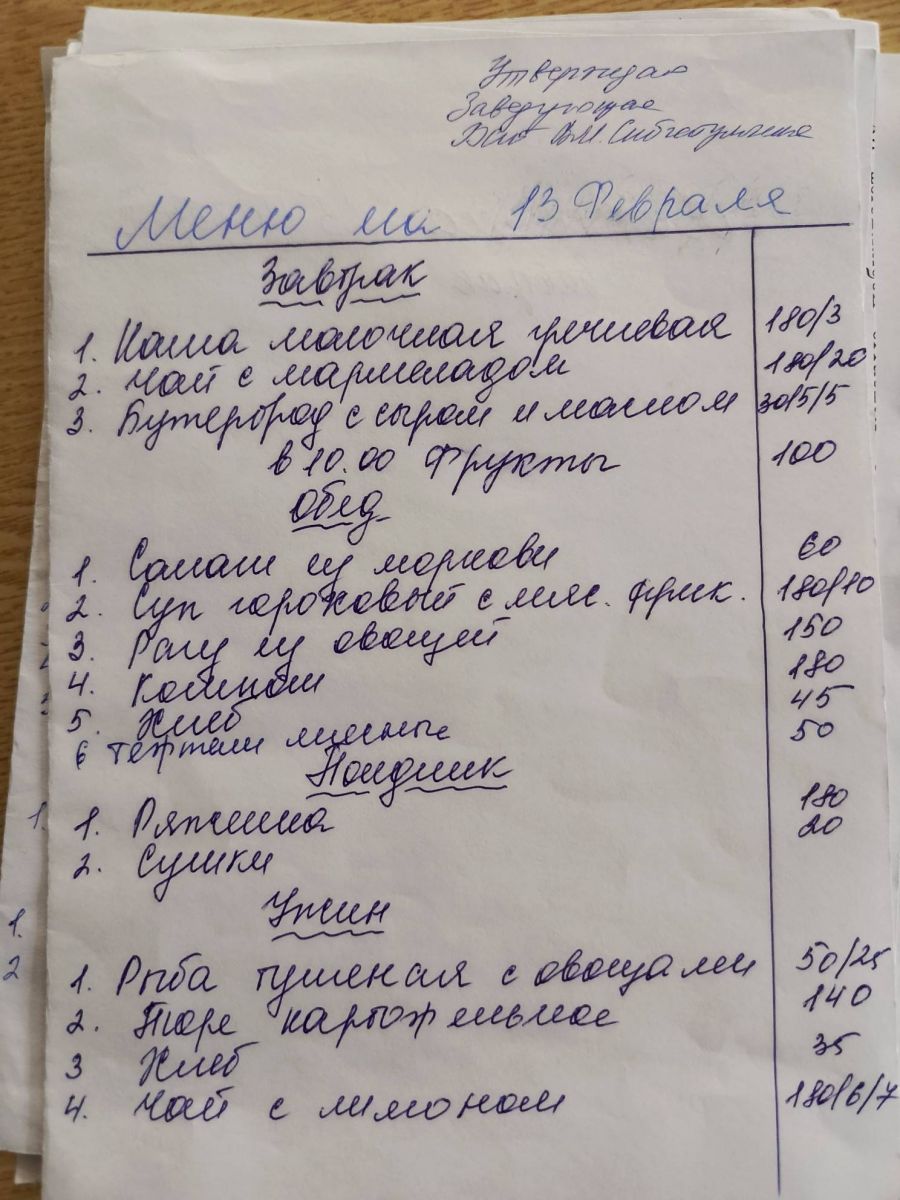 Утверждаю
Заведующая
Меню на 13 Февраля
Завтрак
1. Каша молочная гречневая 180/3
2. Чай с мармеладом 180/20
3. Бутерброд с сыром и маслом 30/5/5
в 10.00 Фрукты 100
Обед
1. Салат из моркови 60
2. Суп гороховый с мяс. фрик. 180/10
3. Рагу из овощей 150
4. Компот 180
5. Хлеб 45
6 Тефтели мясные 50
Полдник
1. Ряженка 180
2. Сушки 20
Ужин
1. Рыба тушеная с овощами 50/25
2. Пюре картофельное 140
3 Хлеб 35
4. Чай с лимоном 180/6/7
1.
1.
2